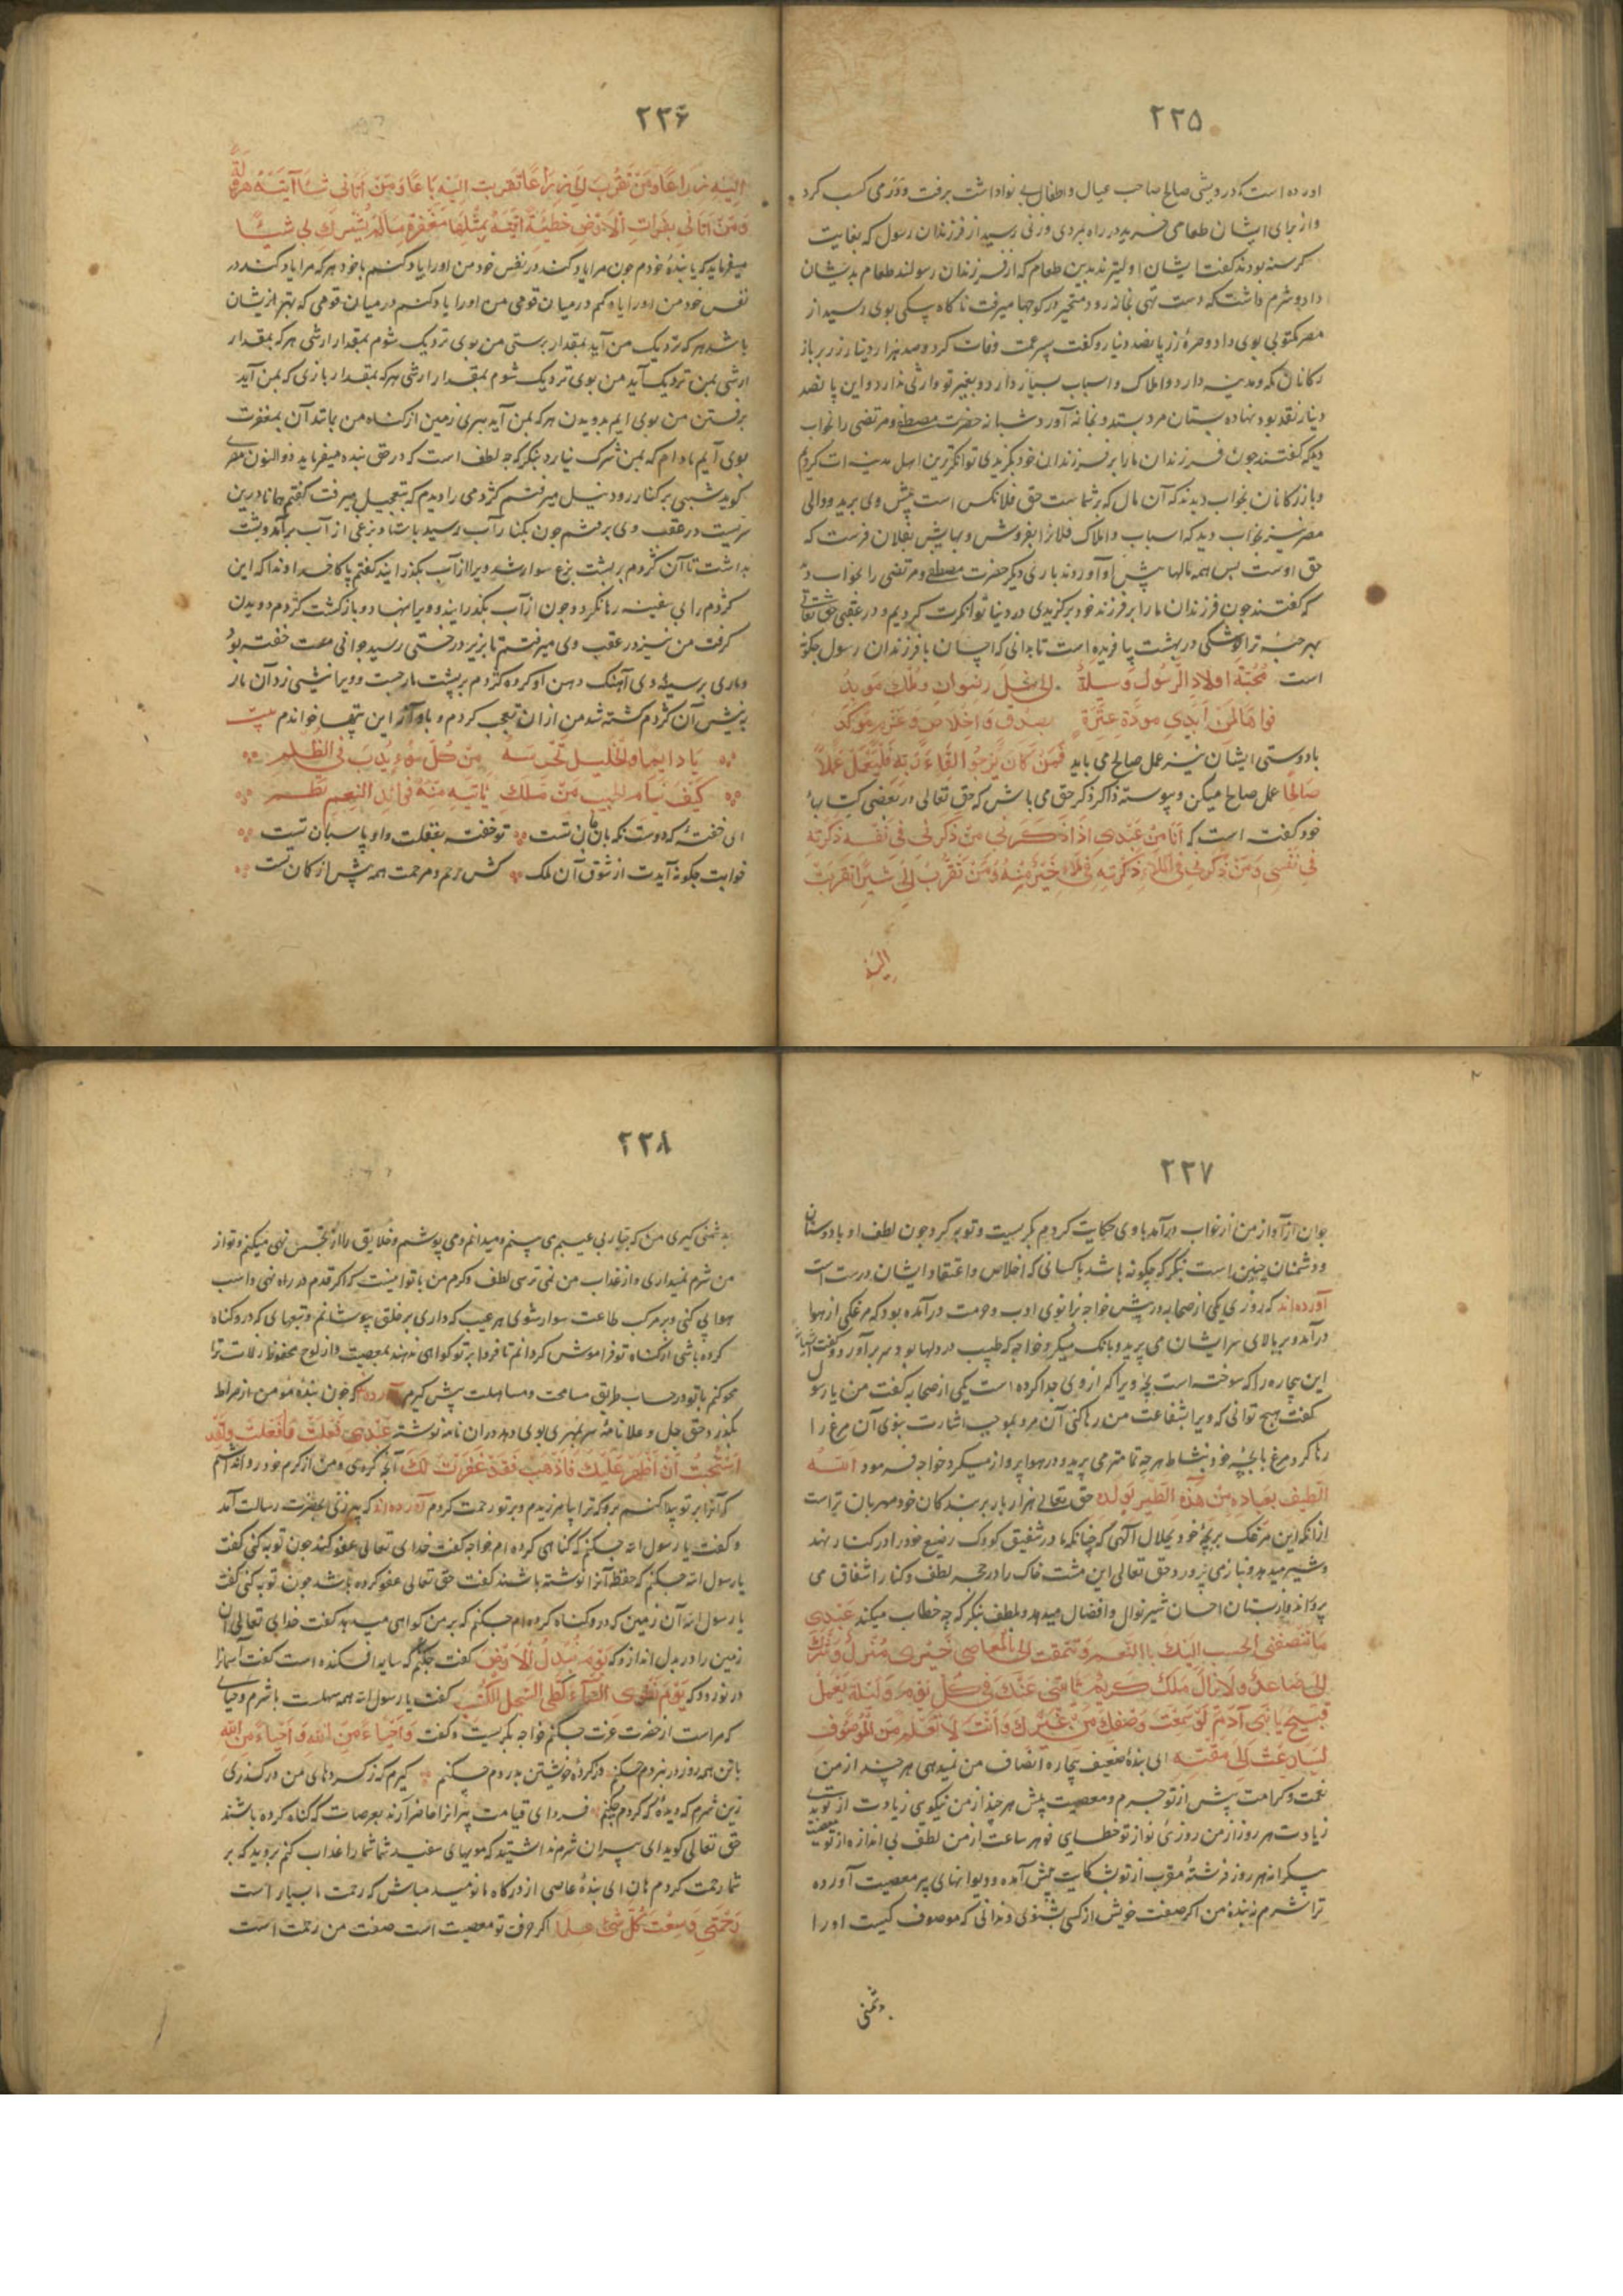 ۲۲۵
اورده است که درویشی صالح صاحب عیال و اطفال بی نوا داشت برفت و درمی کسب کرد
و از برای ایشان طعامی خرید در راه بمردی و زنی رسید از فرزندان رسول که بغایت
کرسنه بودند کفت ایشان اولیترند بدین طعام که از فرزندان رسولند طعام بدیشان
داد و شرم داشت که دست تهی بخانه رود متحیر در کوچها میرفت ناکاه پیکی بوی رسید از
مصر مکتوبی بوی داد و صرهٔ زر پانصد دینار و کفت پسر عمت وفات کرد و صد هزار دینار زر بر باز
رکانان مکه و مدینه دارد و املاک و اسباب بسیار دارد و بغیر تو وارثی ندارد و این پانصد
دینار نقد بود نهاده بستان مرد بستد و بخانه آورد شبانه حضرت مصطفی و مرتضی را بخواب
دید که کفتند چون فرزندان ما را بر فرزندان خود بکزیدی توانکرترین اهل مدینه ات کردیم
و بازرکانان بخواب دیدند که آن مال که بر شماست حق فلانکس است پیش وی برید و والی
مصر نیز بخواب دید که اسباب و املاک فلانرا بفروش و بهایش بفلان فرست که
حق اوست بس همه مالها پیش او آوردند باری دیکر حضرت مصطفی و مرتضی را بخواب د
که کفتند چون فرزندان ما را بر فرزند خود برکزیدی در دنیا توانکرت کردیم و در عقبی حق تعالی
بهر حبه ترا کوشکی در بهشت بیافریده است تا بدانی که احسان با فرزندان رسول چکونه
است محبة اولاد الرسول وسیلة الی نیل رضوان و ملک موید
فواها لمن ابدی مودة عترة بصدق و اخلاص و عزم موکد
با دوستی ایشان نیز عمل صالح می باید فَمَن کَانَ یَرْجُوا لِقَاءَ رَبِّهِ فَلْیَعْمَلْ عَمَلًا
صَالِحًا عمل صالح میکن و پیوسته ذاکر ذکر حق می باش که حق تعالی در بعضی کتابهاء
خود کفت است که انا من عبدی اذا ذکرنی من ذکرنی فی نفسه ذکرته
فی نفسی و من ذکرنی فی الملاء ذکرته فی ملاء خیر منه و من تقرب الی شبرا تقربت
الیه
۲۲۶
الیه ذراعا و من تقرب الی ذراعا تقربت الیه باعا و من اتانی مشیا آتیته هرولة
و من اتانی بقراب الارض خطیئة اتیته بمثلها مغفرة ما لم یشرک بی شیئا
میفرماید که یا بندهٔ خودم چون مرا یاد کند در نفس خود من او را یاد کنم با خود هر که مرا یاد کند در
نفس خود من او را یاد کنم در میان قومی من او را یاد کنم در میان قومی که بهتر از ایشان
باشد هر که نزدیک من آید بمقدار برستی من بوی نزدیک شوم بمقدار ارشی هر که بمقدار
ارشی بمن نزدیک آید من بوی نزدیک شوم بمقدار ارشی هر که بمقدار بازی که بمن آید
برفتن من بوی ایم بدویدن هر که بمن آید ببری زمین از کناه من بمانند آن بمغفرت
بوی آیم مادام که بمن شرک نیارد بنکر که چه لطف است که در حق بنده میفرماید ذوالنون مصری
کوید شبی بر کنار رود نیل میرفتم کژدمی را دیدم که بتعجیل میرفت کفتم همانا درین
سریست در عقب وی برفتم چون بکنار آب رسید باستاد بزغی از آب برآمد و پشت
بداشت تا آن کژدم بر پشت بزغ سوار شد و ویرا از آب بکذرانید کفتم پاکا خداوندا که این
کژدم را بی سفینه رها نکرد و چون از آب بکذرانید و ویرا بنهاد و باز کشت کژدم دویدن
کرفت من نیز در عقب وی میرفتم تا بزیر درختی رسید جوانی مست خفته بود
و ماری بر سینه وی آهنک دهن او کرده کژدم بر پشت مار جست و ویرا نیشی زد آن مار
به نیش آن کژدم کشته شد من از ان تعجب کردم و باواز این بیتها خواندم بیت
یا راقدا و الجلیل تحرسه من کل سوء یدب فی الظلم
کیف ینام الحبیب من ملک یاتیه منه فوائد النعم نظم
ای خفتهٔ که دوست نکهبان تست تو خفته بغفلت و او پاسبان تست
خوابت چکونه آیدت از شوق آن ملک کش رحم و مرحمت همه پیش از کان تست
۲۲۷
جوان از آواز من از خواب درآمد با وی حکایت کردم بکریست و توبه کرد چون لطف او با دوستان
و دشمنان چنین است بنکر که چکونه باشد با کسانی که اخلاص و اعتقاد ایشان درست است
آورده اند که روزی یکی از صحابه در پیش خواجه بزانوی ادب و حرمت درآمده بود که مرغکی از هوا
درآمد و بر بالای سر ایشان می پرید و بانک میکرد خواجه که طبیب دردها بود سر برآورد و کفت
این بیچاره را که سوخته است بچه ویرا که از وی جدا کرده است یکی از صحابه کفت من یا رسول
کفت هیچ توانی که ویرا بشفاعت من رها کنی آن مرد بموجب اشارت نبوی آن مرغ را
رها کرد مرغ با بچه خود بنشاط هرچه تمامتر می پرید و در هوا پرواز میکرد خواجه فرمود الله
الطیف بعباده من هذه الطیر لولده حق تعالی هزار بار بر بندکان خود مهربان تر است
از آنکه این مرغک بر بچهٔ خود بحلال آلهی که چنانکه مادر شفیق کودک رضیع خود را در کنار نهد
و شیر میدهد و بنازمی پرورد حق تعالی این مشت خاک را در حجر لطف و کنار اشفاق می
پروراند و از پستان احسان شیر نوال و افضال میدهد و بلطف بنکر که چه خطاب میکند عبدی
ما تنصفنی اتحبب الیک باالنعم و تتمقت الی بالمعاصی خیری منزل و شرک
الی صاعد و لا یزال ملک کریم یاتینی عنک فی کل یوم و لیلة بعمل
قبیح یا بنی آدم لو سمعت وصفک من غیرک و انت لا تعلم من الموصوف
لسارعت الی مقته ای بندهٔ ضعیف بیچاره انصاف من نمیدهی هر چند از من
نعمت و کرامت بیش از تو جرم و معصیت بیش هر چند از من نیکوی زیادت از تو بدی
زیادت هر روز از من روزئ نو از تو خطای نو هر ساعت از من لطف بی اندازه از تو معصیت
بیکرانه هر روز فرشتهٔ مقرب از تو بشکایت پیش آمده و دیوانهای پر معصیت آورده
ترا شرم نه بندهٔ من اکر صفت خویش از کسی بشنوی و ندانی که موصوف کیست او را
دشمنی
۲۲۸
بدشمنی کیری من که جبارم عیب می بینم و میدانم و می پوشم و خلایق را از تجسس نهی میکنم و تو از
من شرم نمیداری و از عذاب من نمی ترسی لطف و کرم من با تو اینست که اکر قدم در راه نهی و اسب
هوا پی کنی و بر مرکب طاعت سوار شوی هر عیب که داری بر خلق بپوشانم و بقعهای که درو کناه
کرده باشی از کناه تو فراموش کردانم تا فردا بر تو کواهی ندهند بمعصیت و از لوح محفوظ زلات ترا
محو کنم با تو در حساب طریق مسامحت و مساهلت پیش کیرم آورده اند که چون بندهٔ مؤمن از صراط
بکذرد حق جل و علا نامهٔ سر بمهری بوی دهد در ان نامه نوشته عبدی فعلت ما فعلت و لقد
استحییت ان اظهر علیک فاذهب فقد غفرت لک آنچه کردی و من از کرم خود روا نداشتم
که آنرا بر تو پیدا کنم برو که ترا بیامرزیدم و بر تو رحمت کردم آورده اند که پیرزنی بحضرت رسالت آمد
و کفت یا رسول الله چکنم که کناهی کرده ام خواجه کفت خدای تعالی عفو کند چون توبه کنی کفت
یا رسول الله چکنم که حفظه آنرا نوشته باشند کفت حق تعالی عفو کرده باشد چون توبه کنی کفت
یا رسول الله آن زمین که درو کناه کرده ام چکنم که بر من کواهی میدهد کفت خدای تعالی آن
زمین را در بدل اندازد که یوم تبدل الارض کفت چکنم که سایه افکنده است کفت آسمانرا
در نوردد که یَوْمَ نَطْوِی السَّمَاءَ کَطَیِّ السِّجِلِّ لِلْکُتُبِ کفت یا رسول الله همه سهلست با شرم و حیای
که مراست از حضرت عزت چکنم خواجه بکریست و کفت وا حیاء من الله وا حیاء من الله
با تن همه روز در نبردم چکنم وز کردهٔ خویشتن بدردم چکنم کیرم که ز کردهای من درکذری
زین شرم که دیدهٔ که کردم چکنم فردای قیامت پیرانرا حاضر آرند بعرصات که کناه کرده باشند
حق تعالی کوید ای پیران شرم نداشتید که مویهای سفید شما شما را عذاب کنم بروید که بر
شما رحمت کردم هان ای بندهٔ عاصی از درکاه ما نومید مباش که رحمت ما بسیار است
رحمتی وسعت کل شئ علما اکر حرف تو معصیت است صفت من رحمت است